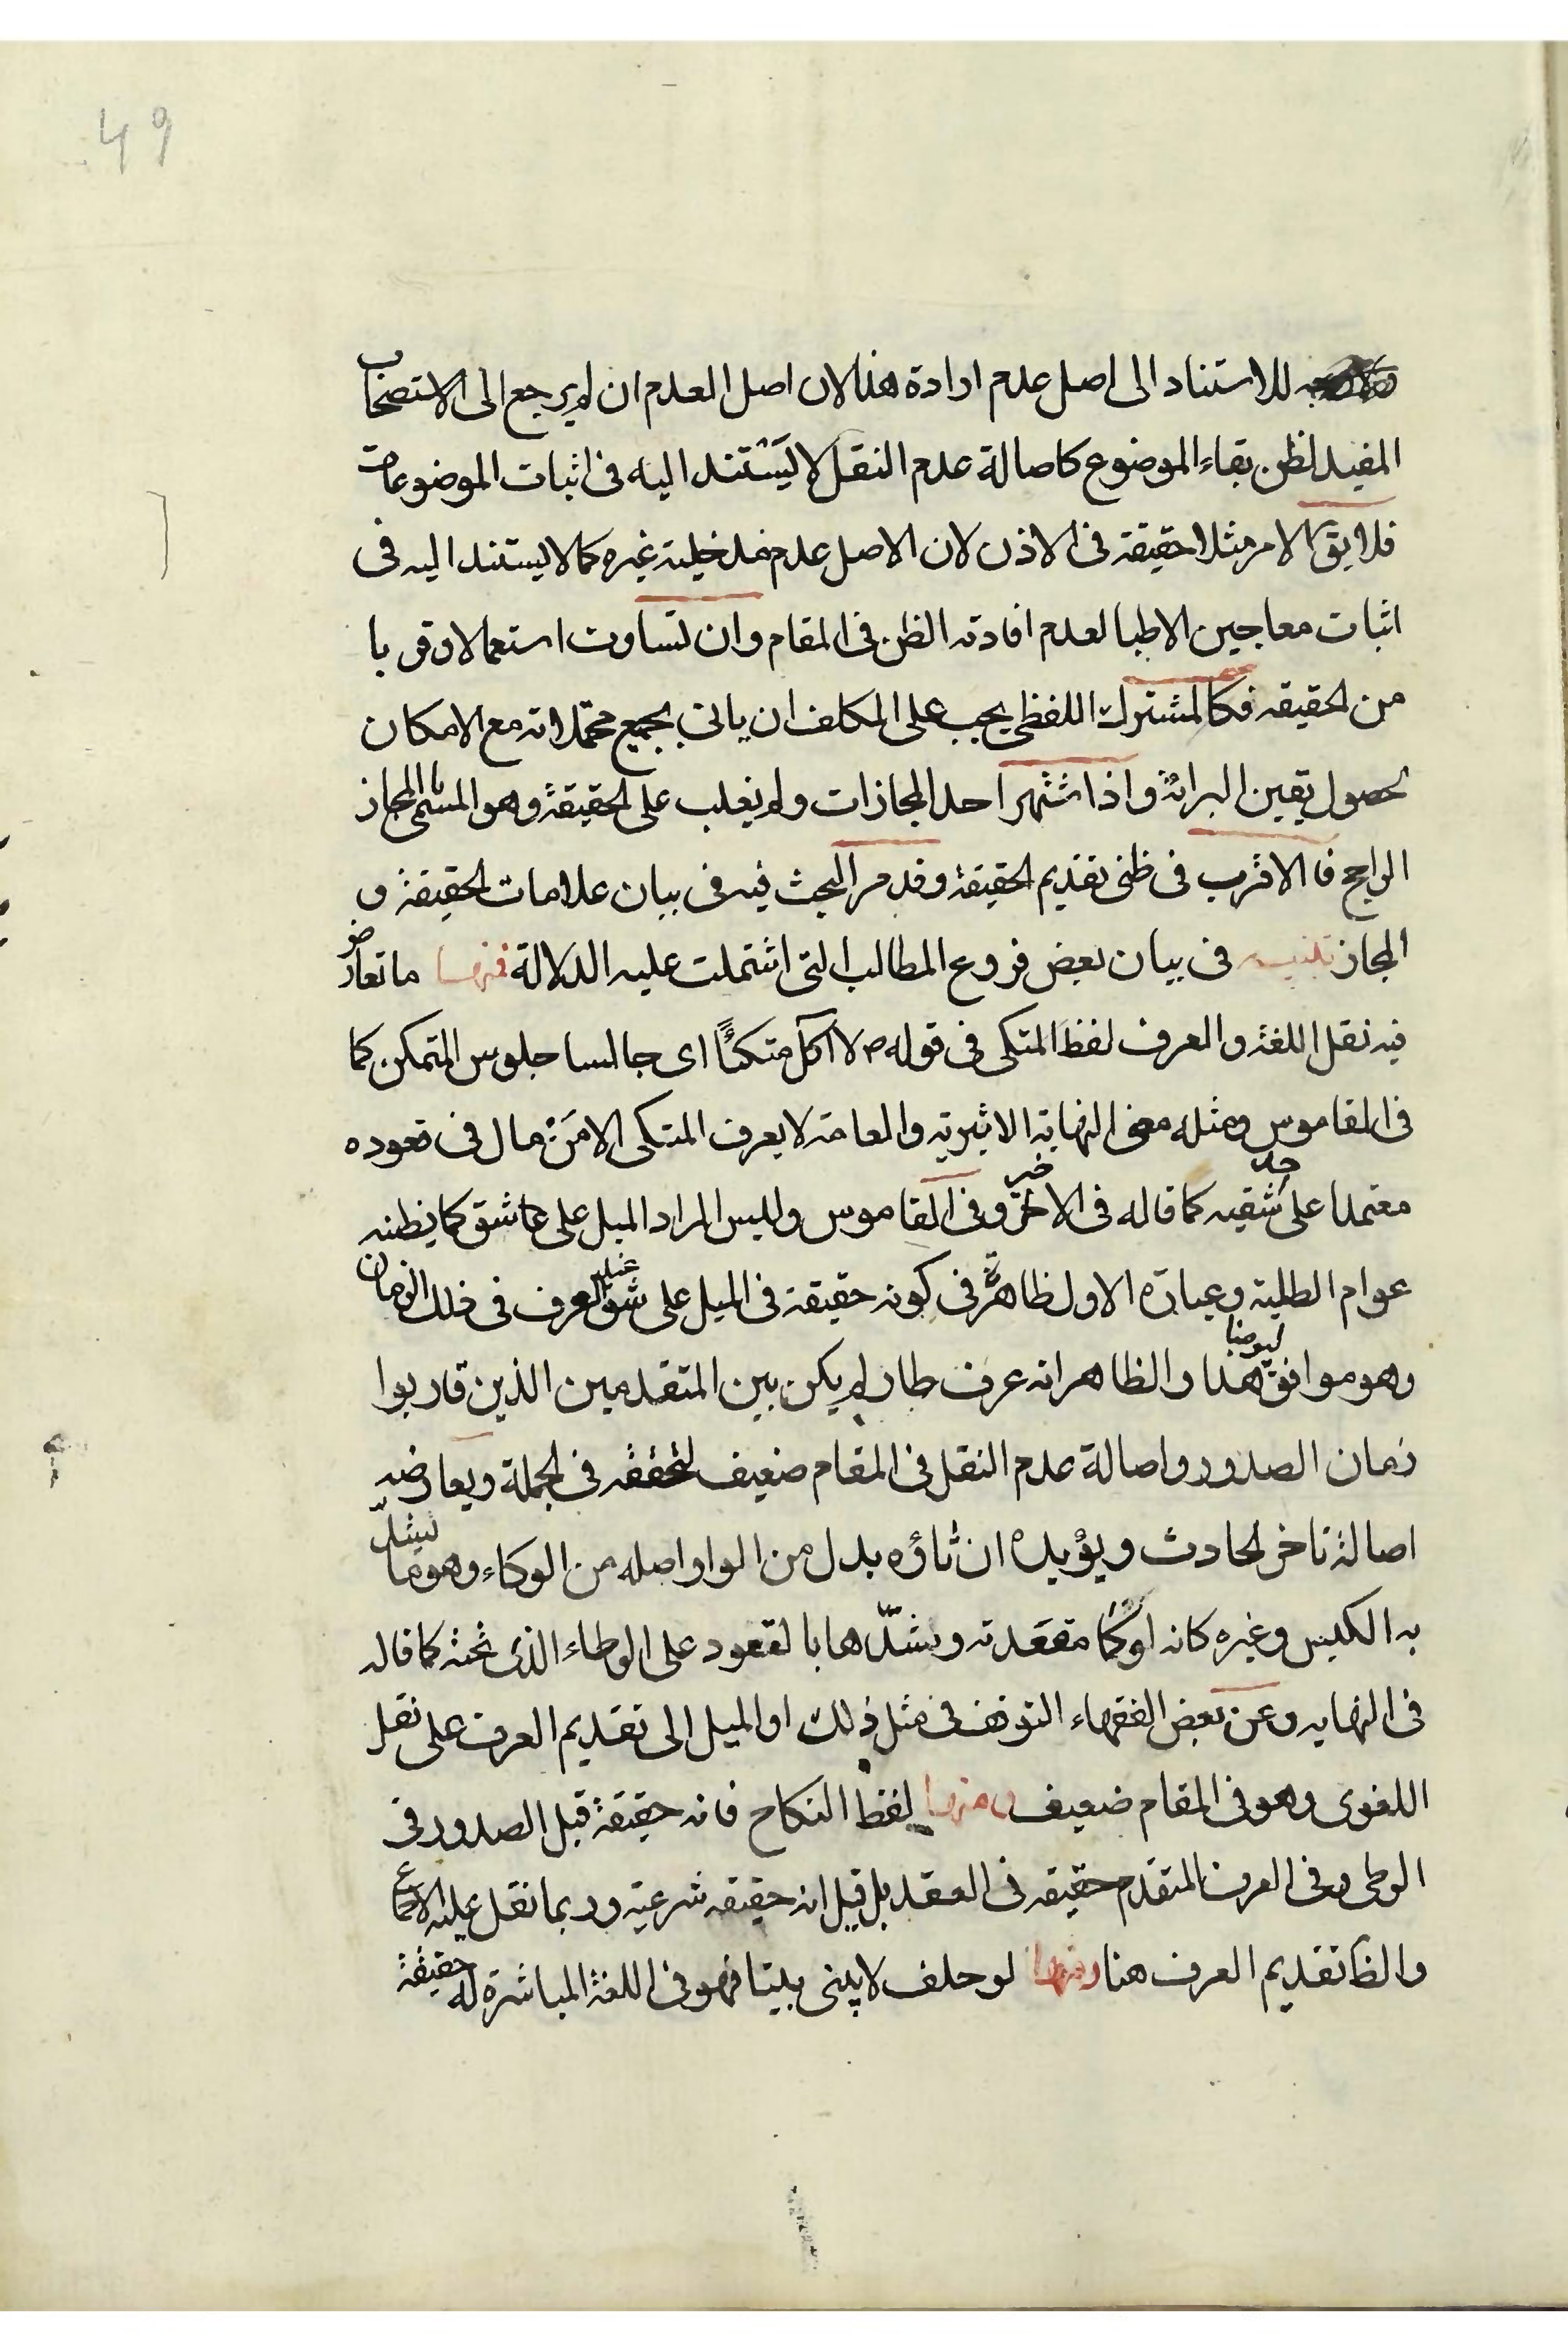 49
للاستناد الى اصل عدم ارادة هذا لان اصل العدم ان لم يرجع الى الاستصحاب
المفيد لظن بقاء الموضوع كاصالة عدم النقل لا يستند اليه فى اثبات الموضوعات
فلا يق الامر مثلا حقيقة فى الاذن لان الاصل عدم مدخلية غيره كما لا يستند اليه فى
اثبات معاجين الاطبا لعدم افادته الظن فى المقام وان تساوت استعمالا وقربا
من الحقيقه فكالمشترك اللفظى يجب على المكلف ان ياتى بجميع محتملاته مع الامكان
لحصول يقين البرائة واذا اشتهر احد المجازات ولم يغلب على الحقيقة وهو المسمى بالمجاز
الراجح فالاقرب فى ظنى تقديم الحقيقة وقد مر البحث فيه فى بيان علامات الحقيقة و
المجاز تذنيب فى بيان بعض فروع المطالب التى اشتملت عليه الدلالة فمنها ما تعارض
فيه نقل اللغة والعرف لفظ المتكى فى قوله ص لا اكل متكئا اى جالسا جلوس المتمكن كما
فى القاموس ومثله معنى النهاية الاثيرية والعامة لا يعرف المتكى الا من مال فى قعوده
معتمدا على احد شقيه كما قاله فى الاخير وفى القاموس وليس المراد الميل على ما شق كما يظنه
عوام الطلبة وعبارة الاول ظاهرة فى كونه حقيقة فى الميل على شق عند العرف فى ذلك الزمان
وهو موافق ليومنا هذا والظاهر انه عرف طار لم يكن بين المتقدمين الذين قاربوا
زمان الصدور واصالة عدم النقل فى المقام ضعيف لتحققه فى الجملة ويعارضه
اصالة تاخر الحادث ويؤيده ان تاؤه بدل من الواو اصله من الوكاء وهو ما يشد
به الكيس وغيره كانه اوكا مقعدته وشدها بالقعود على الوطاء الذى تحته كما قاله
فى النهايه وعن بعض الفقهاء التوقف فى مثل ذلك او الميل الى تقديم العرف على نقل
اللغوى وهو فى المقام ضعيف ومنها لفظ النكاح فانه حقيقة قبل الصدور فى
الوطى وفى العرف المتقدم حقيقه فى العقد بل قيل انه حقيقه شرعية وربما نقل عليه الاجماع
والظ تقديم العرف هنا ومنها لو حلف لا يبنى بيتا فهو فى اللغة المباشرة له حقيقة